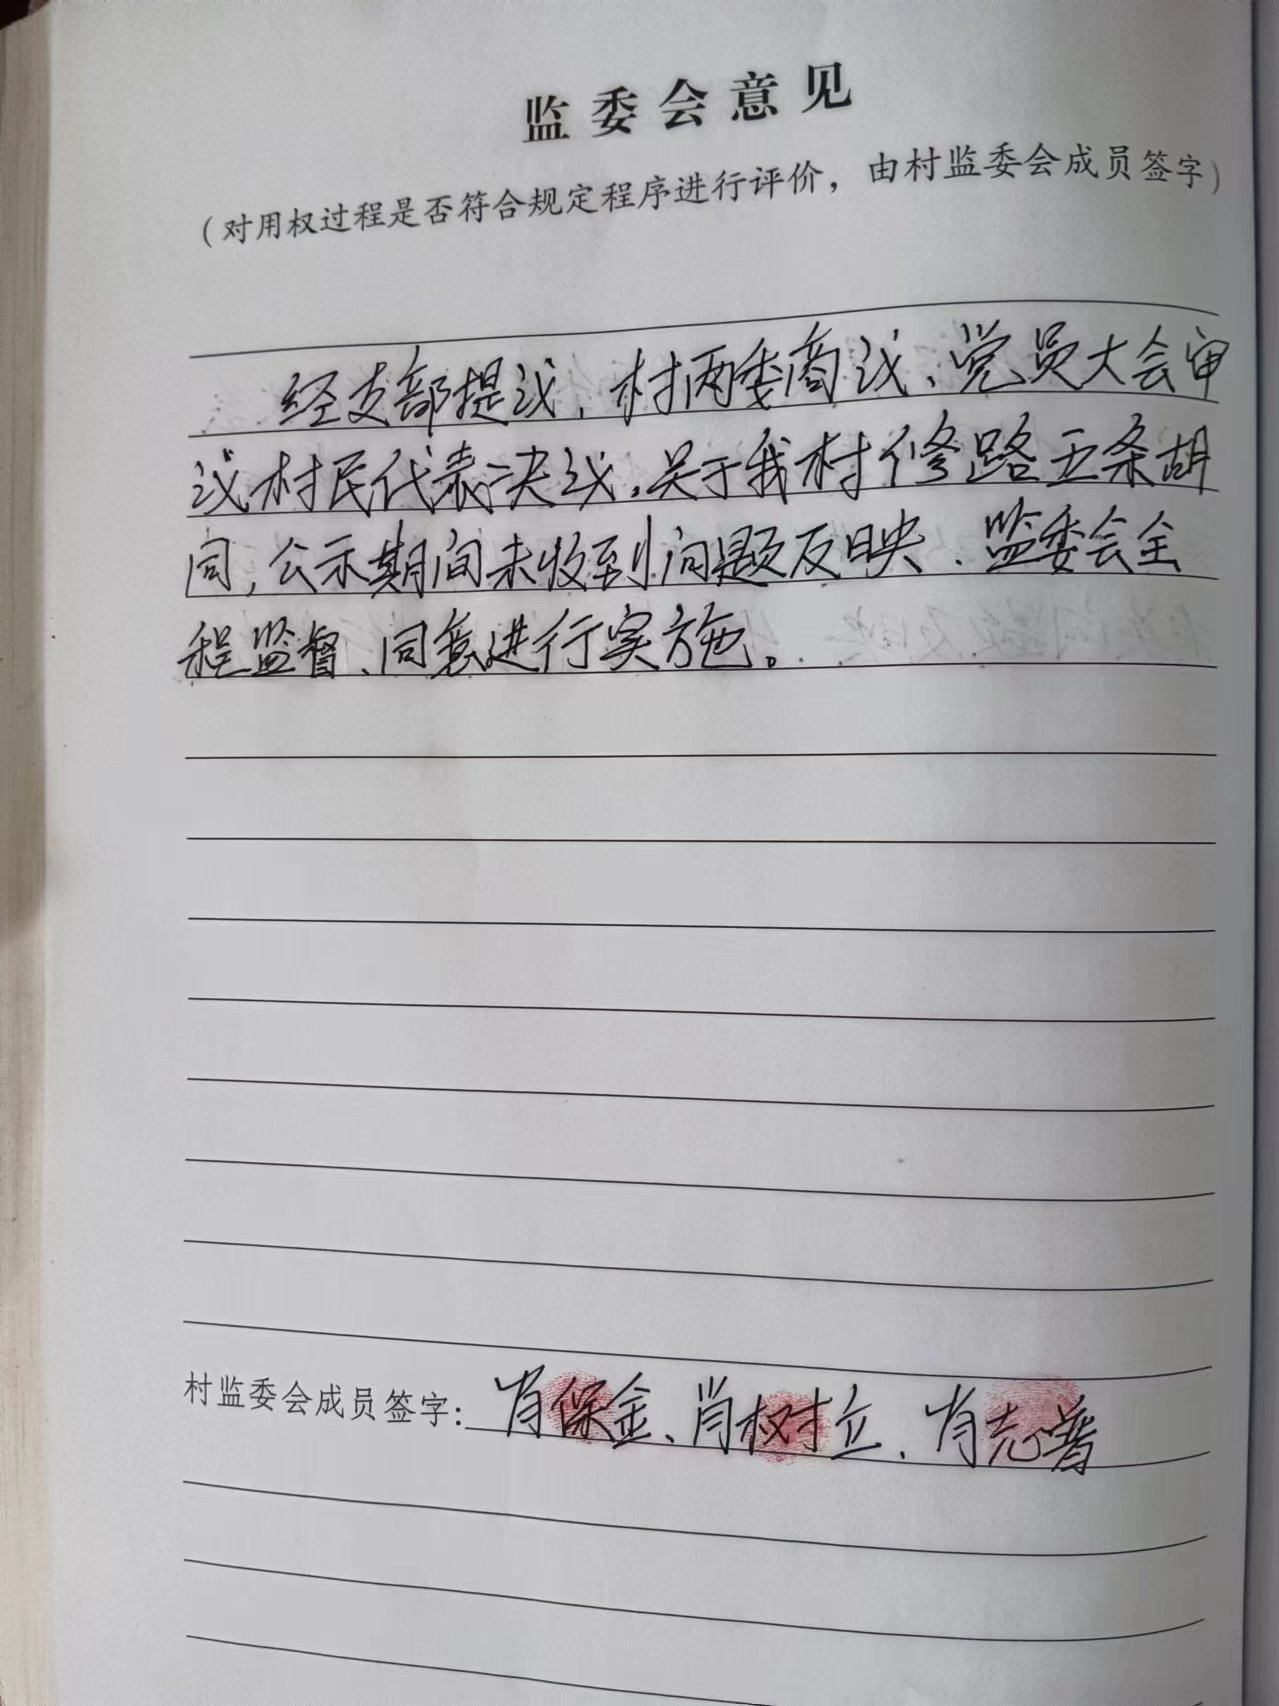 监委会意见
（对用权过程是否符合规定程序进行评价，由村监委会成员签字）
经支部提议，村两委商议、党员大会审
议村民代表决议，关于我村修路五条胡
同，公示期间未收到问题反映、监委会全
程监督、同意进行实施。
村监委会成员签字：肖保金、肖树立、肖志普